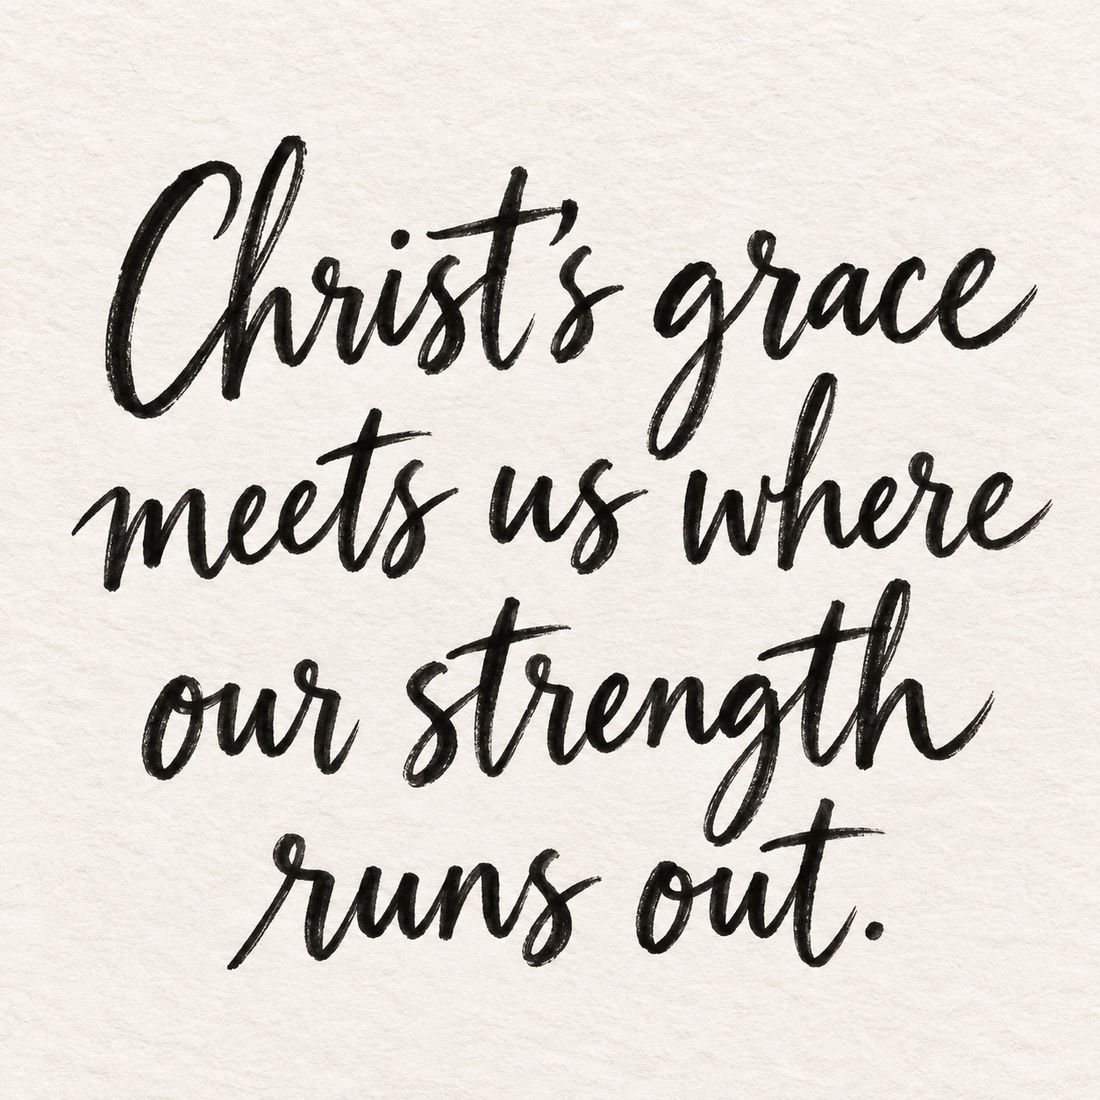 Christ's grace
meets us where
our strength
runs out.